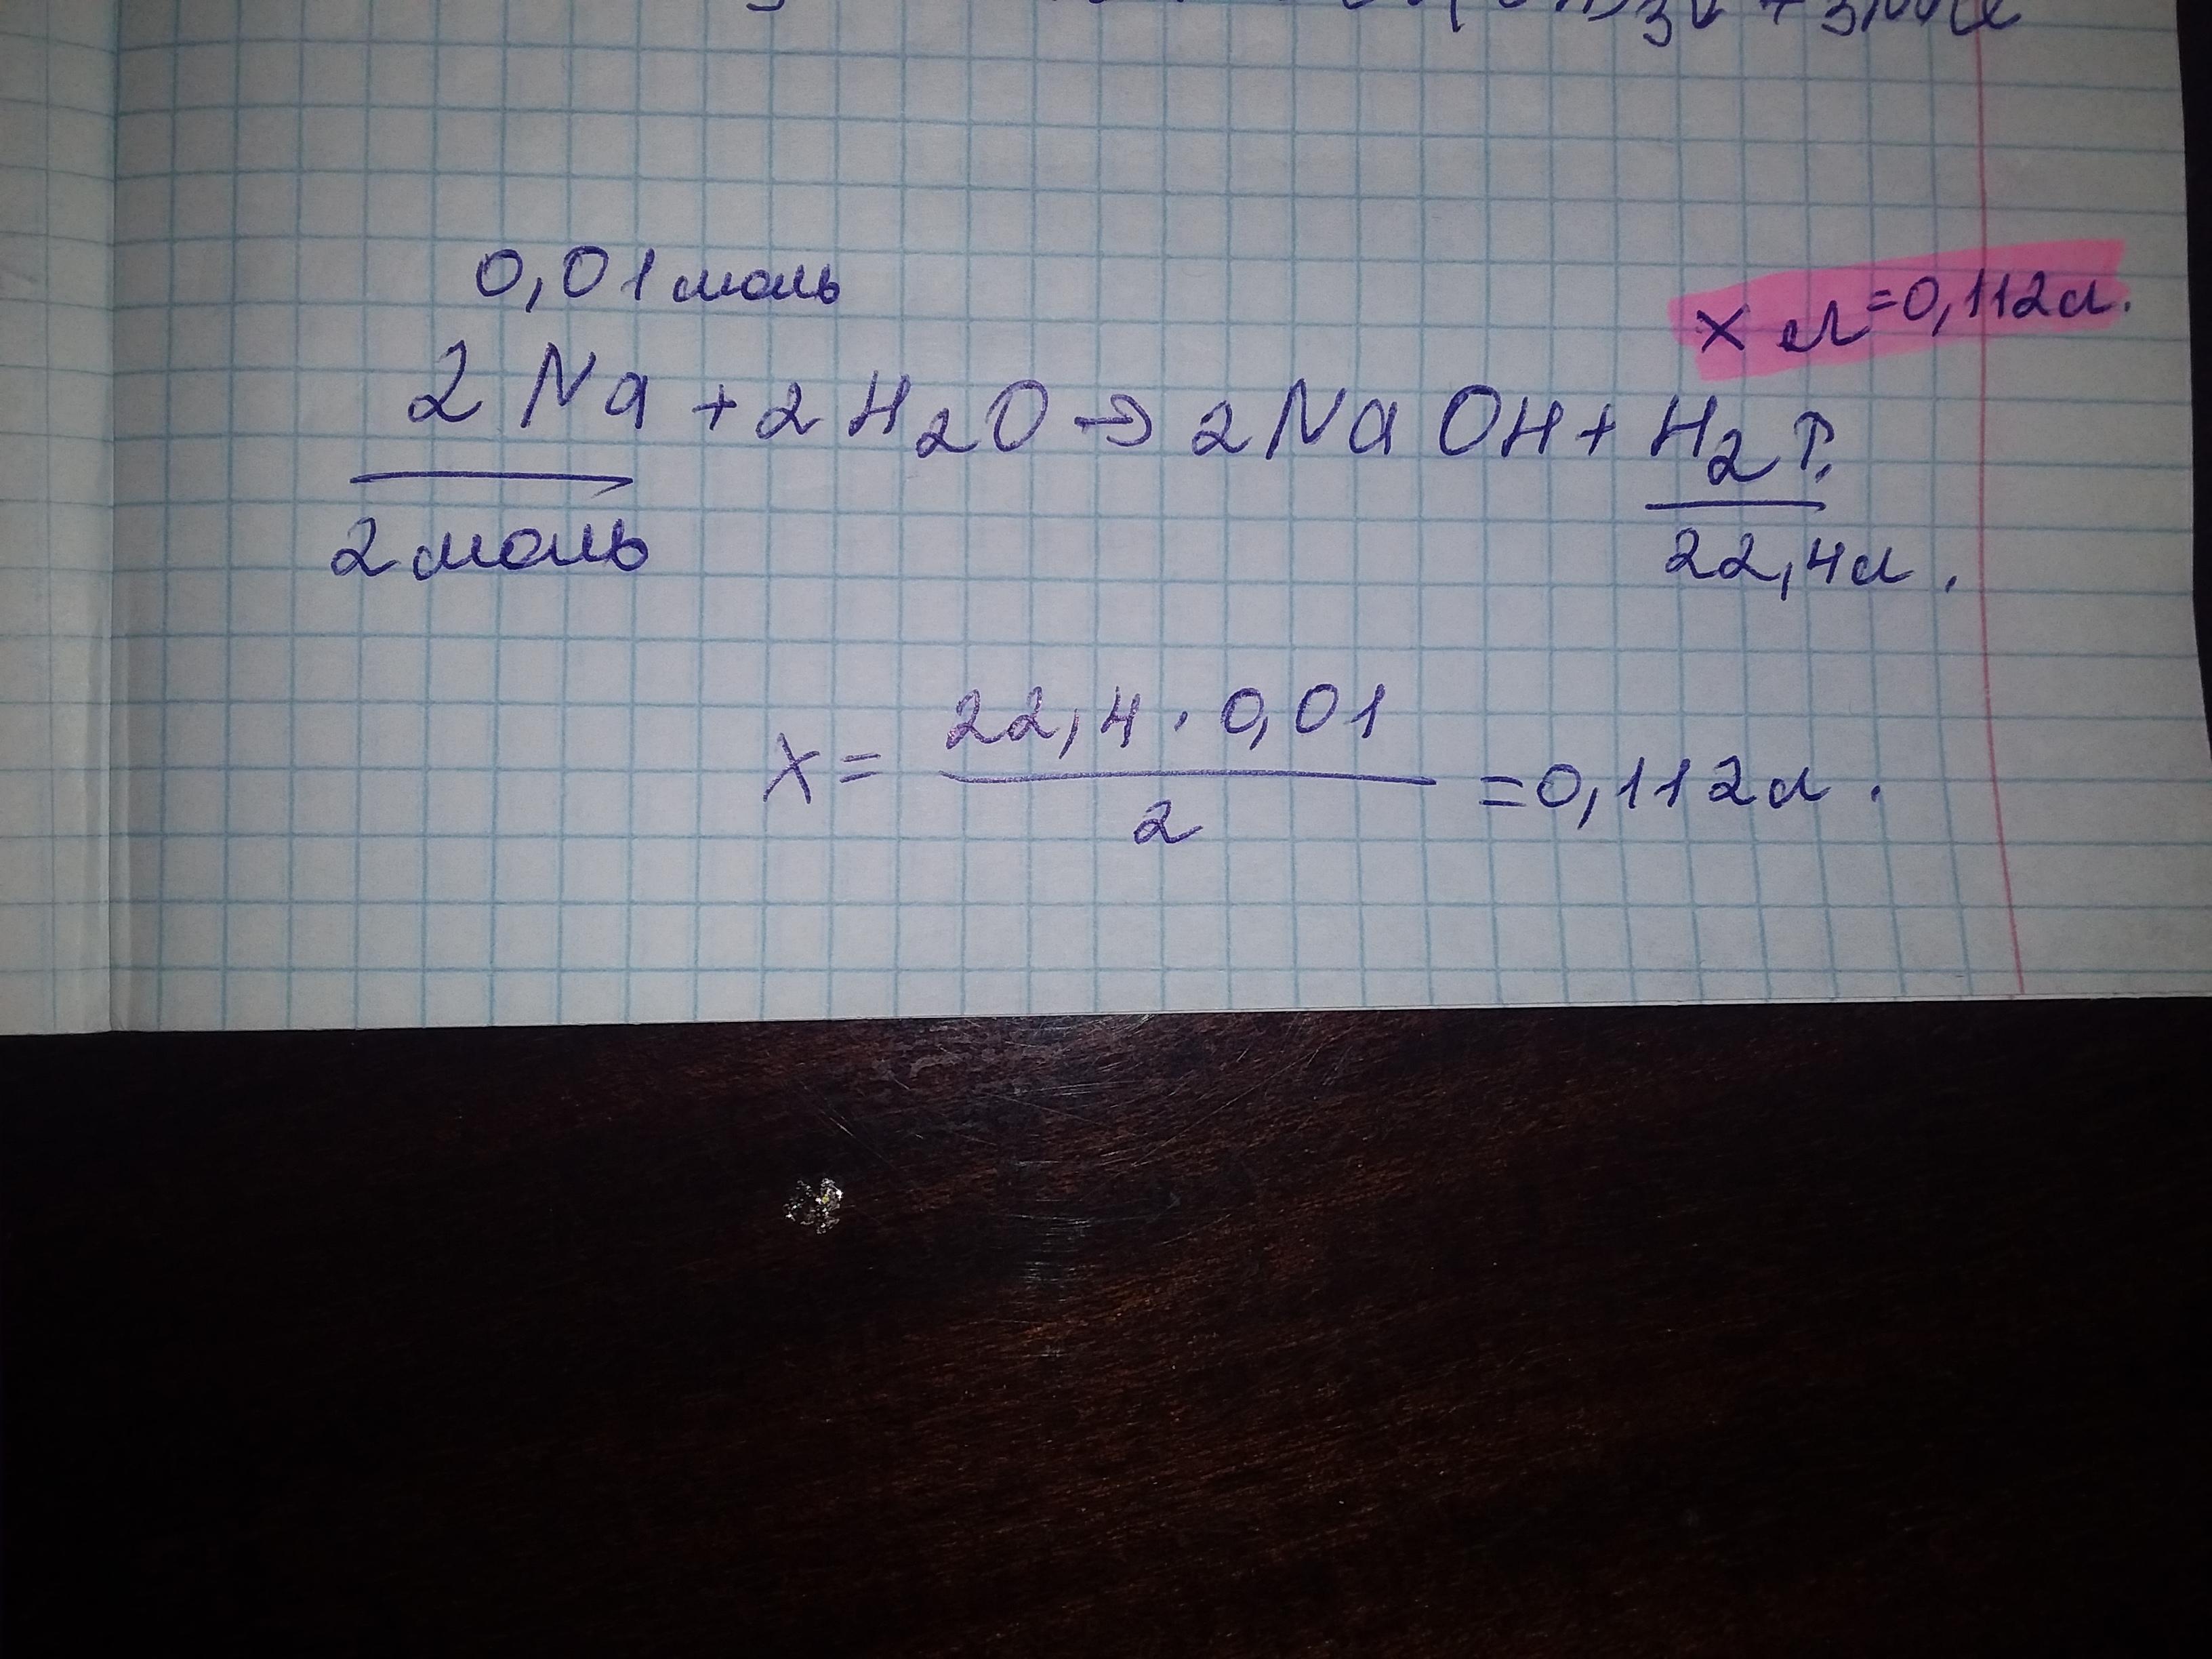 0,01 моль
x л=0,112л.
2Na + 2H₂O → 2NaOH + H₂↑.
2 моль
22,4л.
x = 22,4 · 0,01 / 2 = 0,112л.